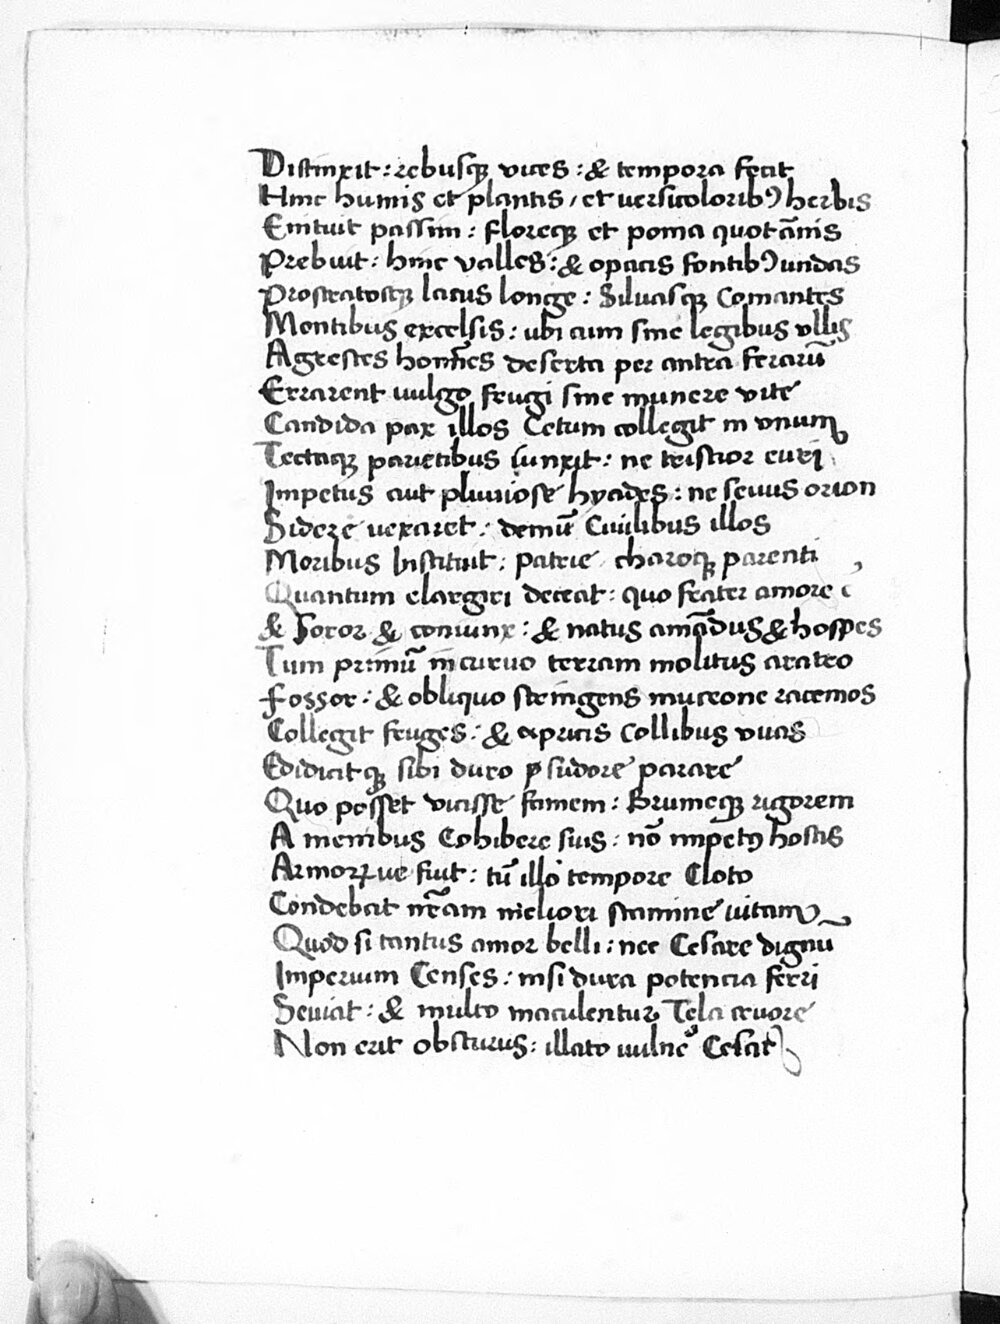 Distinxit: rebusqꝫ vices: & tempora fecit
Hinc humis et plantis / et uersicoloribꝰ herbis
Enituit passim: floreqꝫ et poma quotānis
Prebuit: hinc valles: & opacis fontibꝰ undas
Prostratosqꝫ lacus longe: Siluasqꝫ Comantes
Montibus excelsis: ubi cum sine legibus vllis
Agrestes homīes deserta per antra ferarū
Errarent uulgo frugi sine munere vite
Candida pax illos Cetum collegit in vnum
Tectaqꝫ parietibus iunxit: ne tristior euri
Impetus aut pluuiose hyades: ne seuus orion
Sidere uexaret: demū Ciuilibus illos
Moribus Instituit: patrie charoqꝫ parenti
Quantum elargiri deceat: quo frater amore
& Soror & coniunx: & natus amādus & hospes
Tum primū incuruo terram molitus aratro
Fossor: & obliquo stringens mucrone racemos
Collegit fruges: & apricis Collibus vuas
Edidicitqꝫ sibi duro ꝑ sudore parare
Quo posset vicisse famem: Brumeqꝫ rigorem
A menibus Cohibere suis: nō impetꝰ hostis
Armorꝝue fuit: tū illo tempore Cloto
Condebat nr̄am meliori stamine uitam
Quod si tantus amor belli: nec Cesare dignū
Imperium Censes: nisi dura potencia ferri
Seuiat: & multo maculentur Tela cruore
Non erit obscurus: illato uulne Cesar